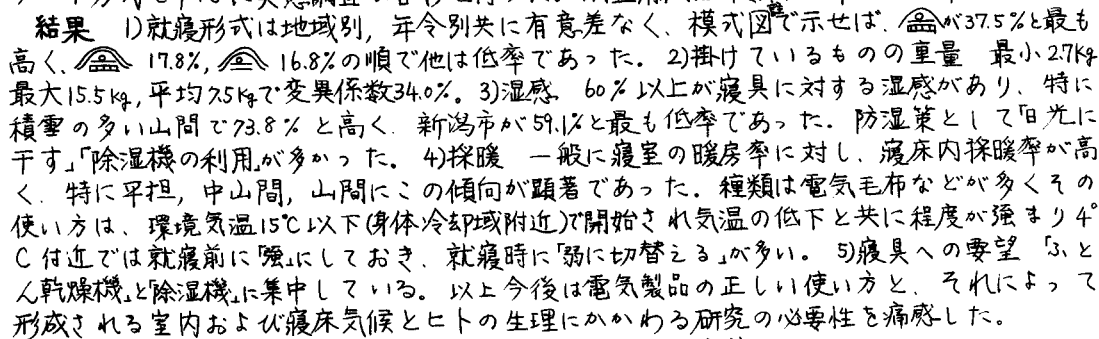 結果 1)就寝形式は地域別, 年令別共に有意差なく、模式図で示せば、が37.5%と最も
高く、17.8%, 16.8%の順で他は低率であった。2)掛けているものの重量 最小2.7kg
最大15.5kg, 平均7.5kgで変異係数34.0%。3)湿感 60%以上が寝具に対する湿感があり、特に
積雪の多い山間で73.8%と高く、新潟市が59.1%と最も低率であった。防湿策として「日光に
干す」「除湿機の利用」が多かった。4)採暖 一般に寝室の暖房率に対し、寝床内採暖率が高
く、特に平担, 中山間, 山間にこの傾向が顕著であった。種類は電気毛布などが多くその
使い方は、環境気温15℃以下(身体冷却域附近)で開始され気温の低下と共に程度が強まり4°
C付近では就寝前に「強」にしておき、就寝時に「弱に切替える」が多い。5)寝具への要望「ふと
ん乾燥機」と「除湿機」に集中している。以上今後は電気製品の正しい使い方と、それによって
形成される室内および寝床気候とヒトの生理にかかわる研究の必要性を痛感した。